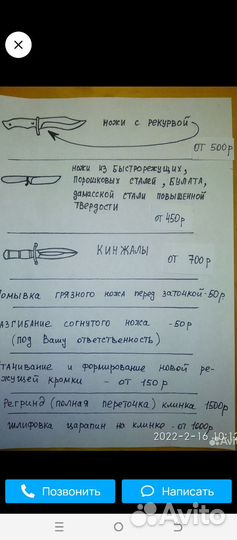 НОЖИ С РЕКУРВОЙ
ОТ 500р
НОЖИ ИЗ БЫСТРОРЕЖУЩИХ,
ПОРОШКОВЫХ СТАЛЕЙ, БУЛАТА,
ДАМАССКОЙ СТАЛИ ПОВЫШЕННОЙ
ТВЕРДОСТИ
ОТ 450р
КИНЖАЛЫ
ОТ 700р
ОМЫВКА ГРЯЗНОГО НОЖА ПЕРЕД ЗАТОЧКОЙ-50р
АЗГИБАНИЕ СОГНУТОГО НОЖА -50р
(ПОД ВАШУ ОТВЕТСТВЕННОСТЬ)
ТАЧИВАНИЕ И ФОРМИРОВАНИЕ НОВОЙ РЕ-
ЖУЩЕЙ КРОМКИ - ОТ 150р
РЕГРИНД (ПОЛНАЯ ПЕРЕТОЧКА) КЛИНКА 1500р
ШЛИФОВКА ЦАРАПИН НА КЛИНКЕ - ОТ 1000р
2022-2-16 10:12
Позвонить
Написать
Avito